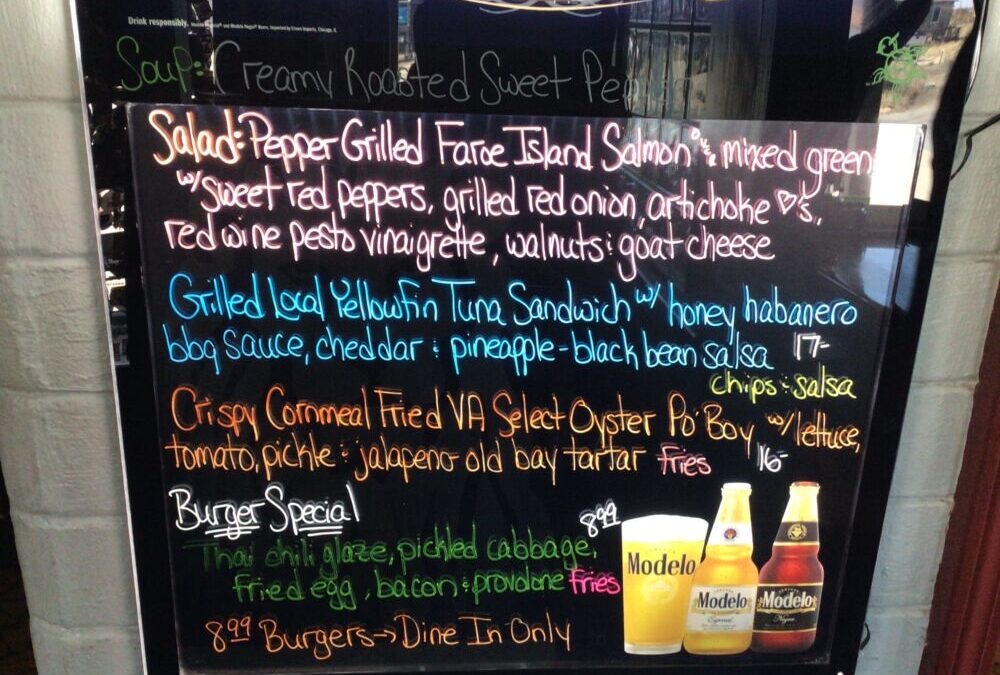 Drink responsibly.
Soup: Creamy Roasted Sweet
Salad: Pepper Grilled Faroe Island Salmon mixed green
w/ sweet red peppers, grilled red onion, artichoke ♡'s,
red wine pesto vinaigrette, walnuts & goat cheese
Grilled Local Yellowfin Tuna Sandwich w/ honey habanero
bbq sauce, cheddar & pineapple-black bean salsa 17-
chips & salsa
Crispy Cornmeal Fried VA Select Oyster Po' Boy w/ lettuce,
tomato, pickle & jalapeno old bay tartar fries 16-
Burger Special 8.99
Thai chili glaze, pickled cabbage,
fried egg, bacon & provolone fries
8.99 Burgers → Dine In Only
Modelo
Modelo
Especial
Modelo
Negra